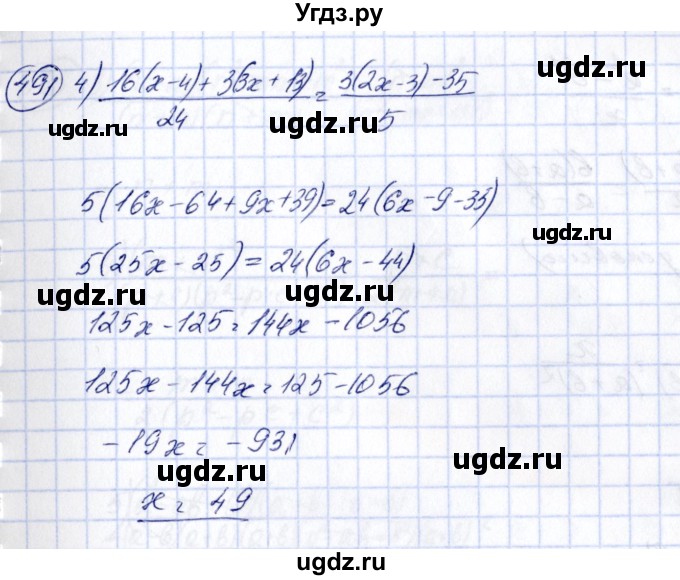 Угдз.ру
491 4) 16(x-4)+3(3x+13) = 3(2x-3)-35
24 5
ugdz.ru ugdz.ru
5(16x-64+9x+39)=24(6x-9-35)
ugdz.ru ugdz.ru
5(25x-25)=24(6x-44)
ugdz.ru ugdz.ru
125x-125=144x-1056
ugdz.ru ugdz.ru
125x-144x=125-1056
-19x=-931
ugdz.ru ugdz.ru
x=49
ugdz.ru ugdz.ru
ugdz.ru